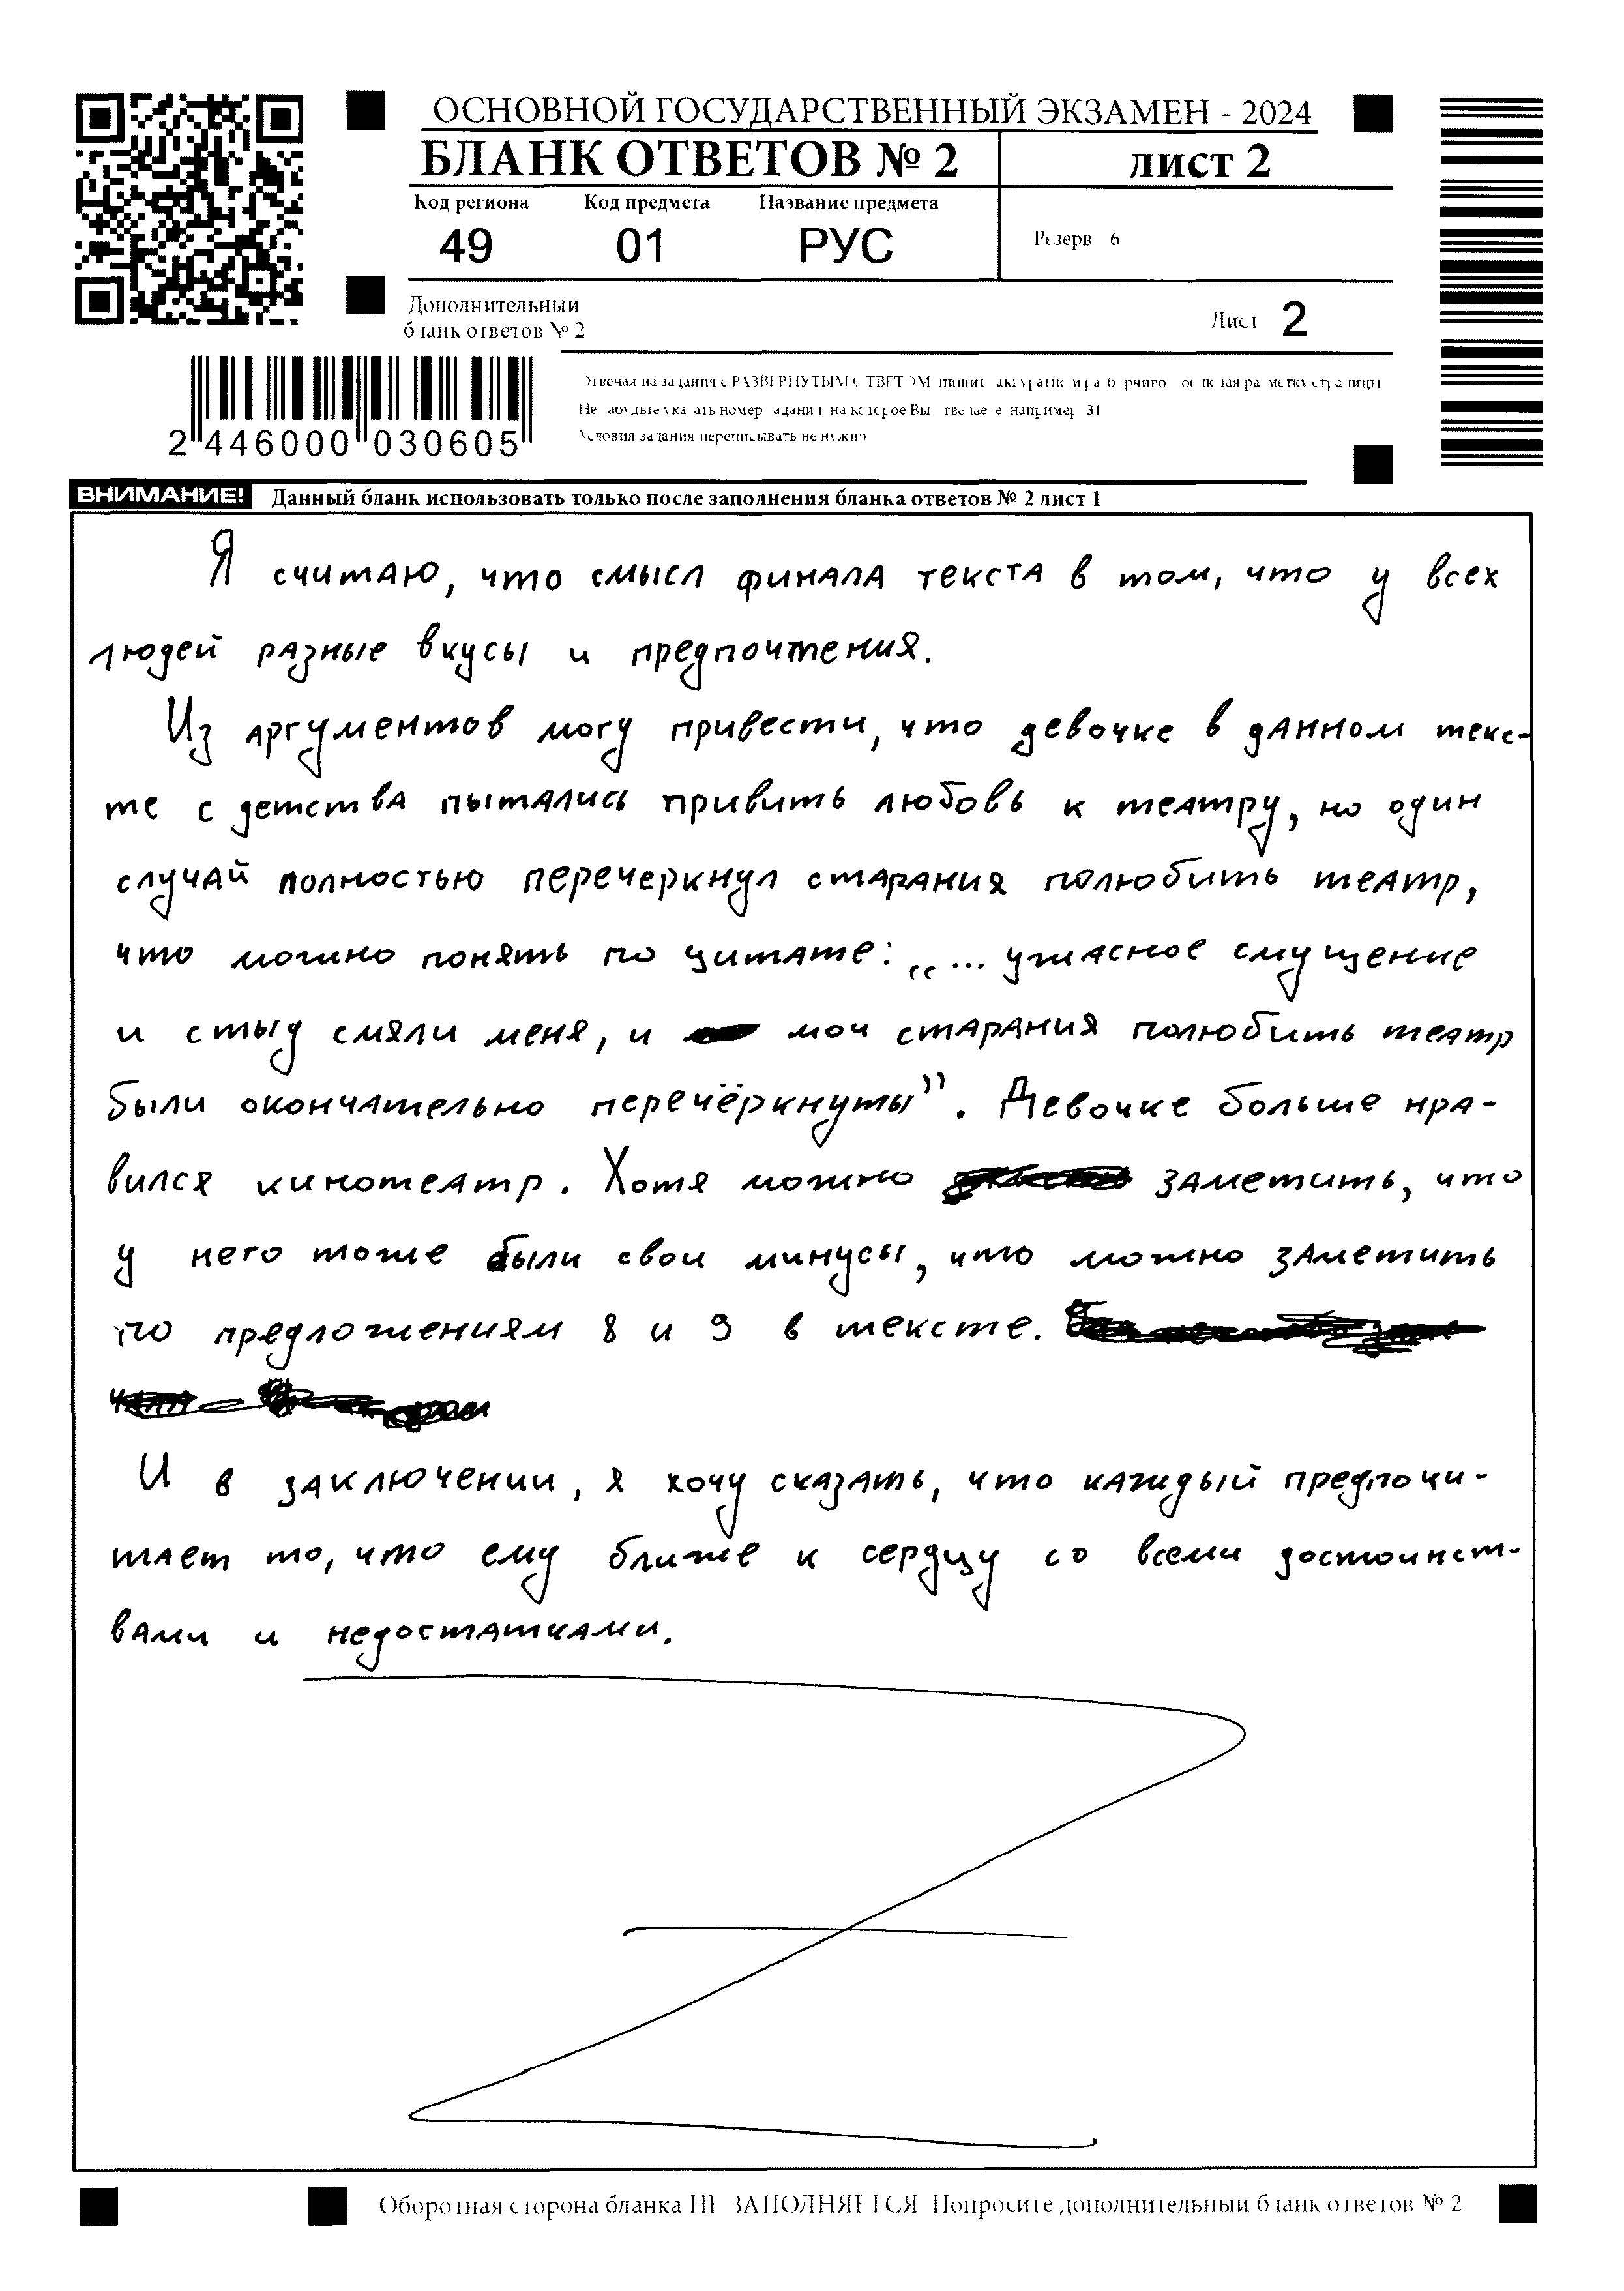 ОСНОВНОЙ ГОСУДАРСТВЕННЫЙ ЭКЗАМЕН - 2024
БЛАНК ОТВЕТОВ № 2
ЛИСТ 2
Код региона Код предмета Название предмета
49 01 РУС
Резерв 6
Дополнительный
бланк ответов № 2
Лист 2
2 446000 030605
Условия задания переписывать не нужно
ВНИМАНИЕ! Данный бланк использовать только после заполнения бланка ответов № 2 лист 1
Я считаю, что смысл финала текста в том, что у всех
людей разные вкусы и предпочтения.
Из аргументов могу привести, что девочке в данном текс-
те с детства пытались привить любовь к театру, но один
случай полностью перечеркнул старания полюбить театр,
что можно понять по цитате: „... ужасное смущение
и стыд смяли меня, и мои старания полюбить театр
были окончательно перечёркнуты”. Девочке больше нра-
вился кинотеатр. Хотя можно заметить, что
у него тоже были свои минусы, что можно заметить
по предложениям 8 и 9 в тексте.
И в заключении, я хочу сказать, что каждый предпочи-
тает то, что ему ближе к сердцу со всеми достоинст-
вами и недостатками.
Оборотная сторона бланка НЕ ЗАПОЛНЯЕТСЯ Попросите дополнительный бланк ответов № 2